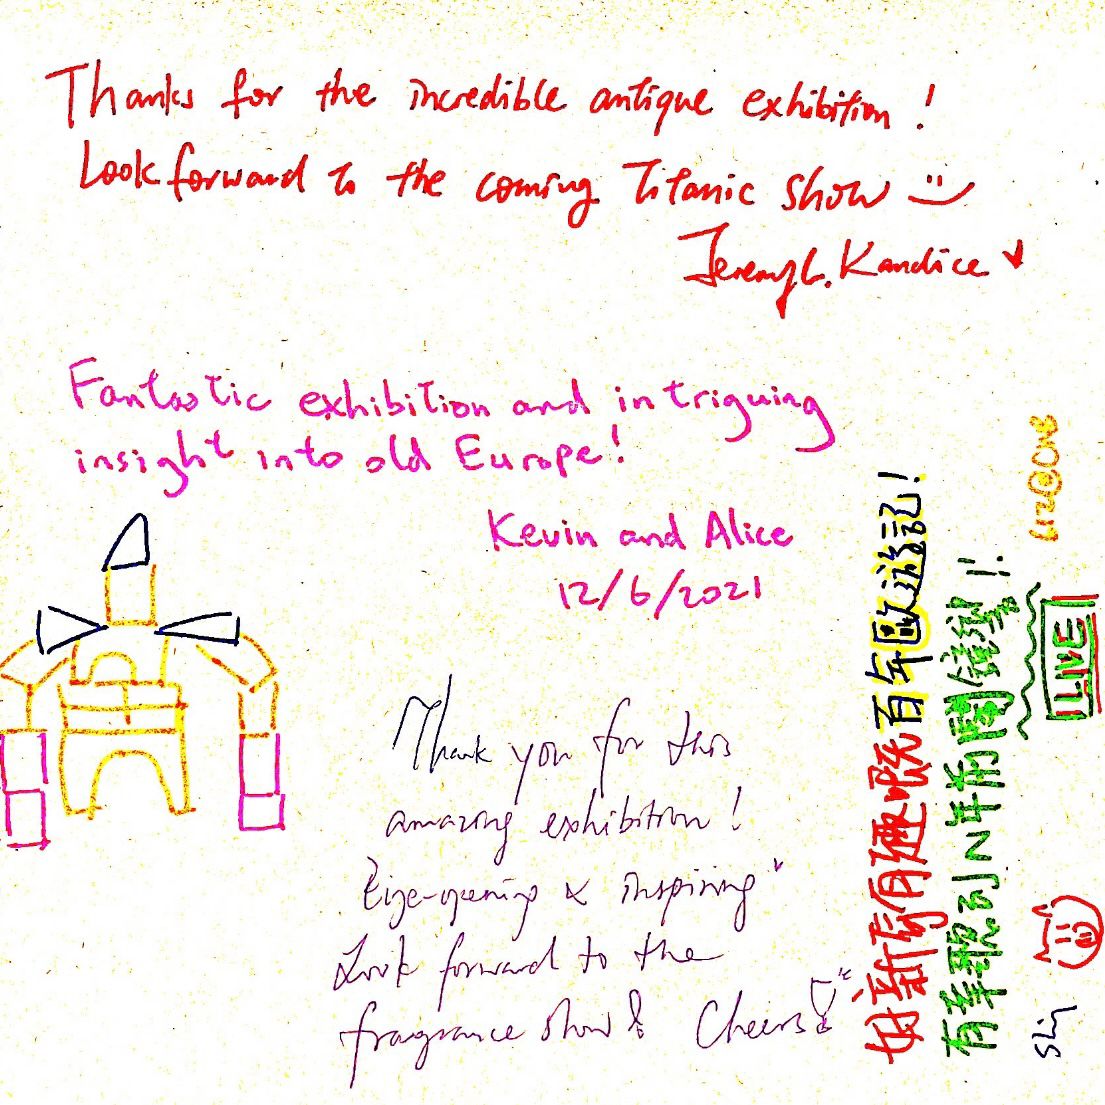 Thanks for the incredible antique exhibition!
Look forward to the coming Titanic show
Kandice
Fantastic exhibition and intriguing
insight into old Europe!
Kevin and Alice
12/6/2021
Thank you for this
amazing exhibition!
Eye-opening & inspiring
Look forward to the
fragrance show! Cheers
好新奇有趣嘅百年歐遊記!
有幸聽到N年前的鐘聲!!
LIVE